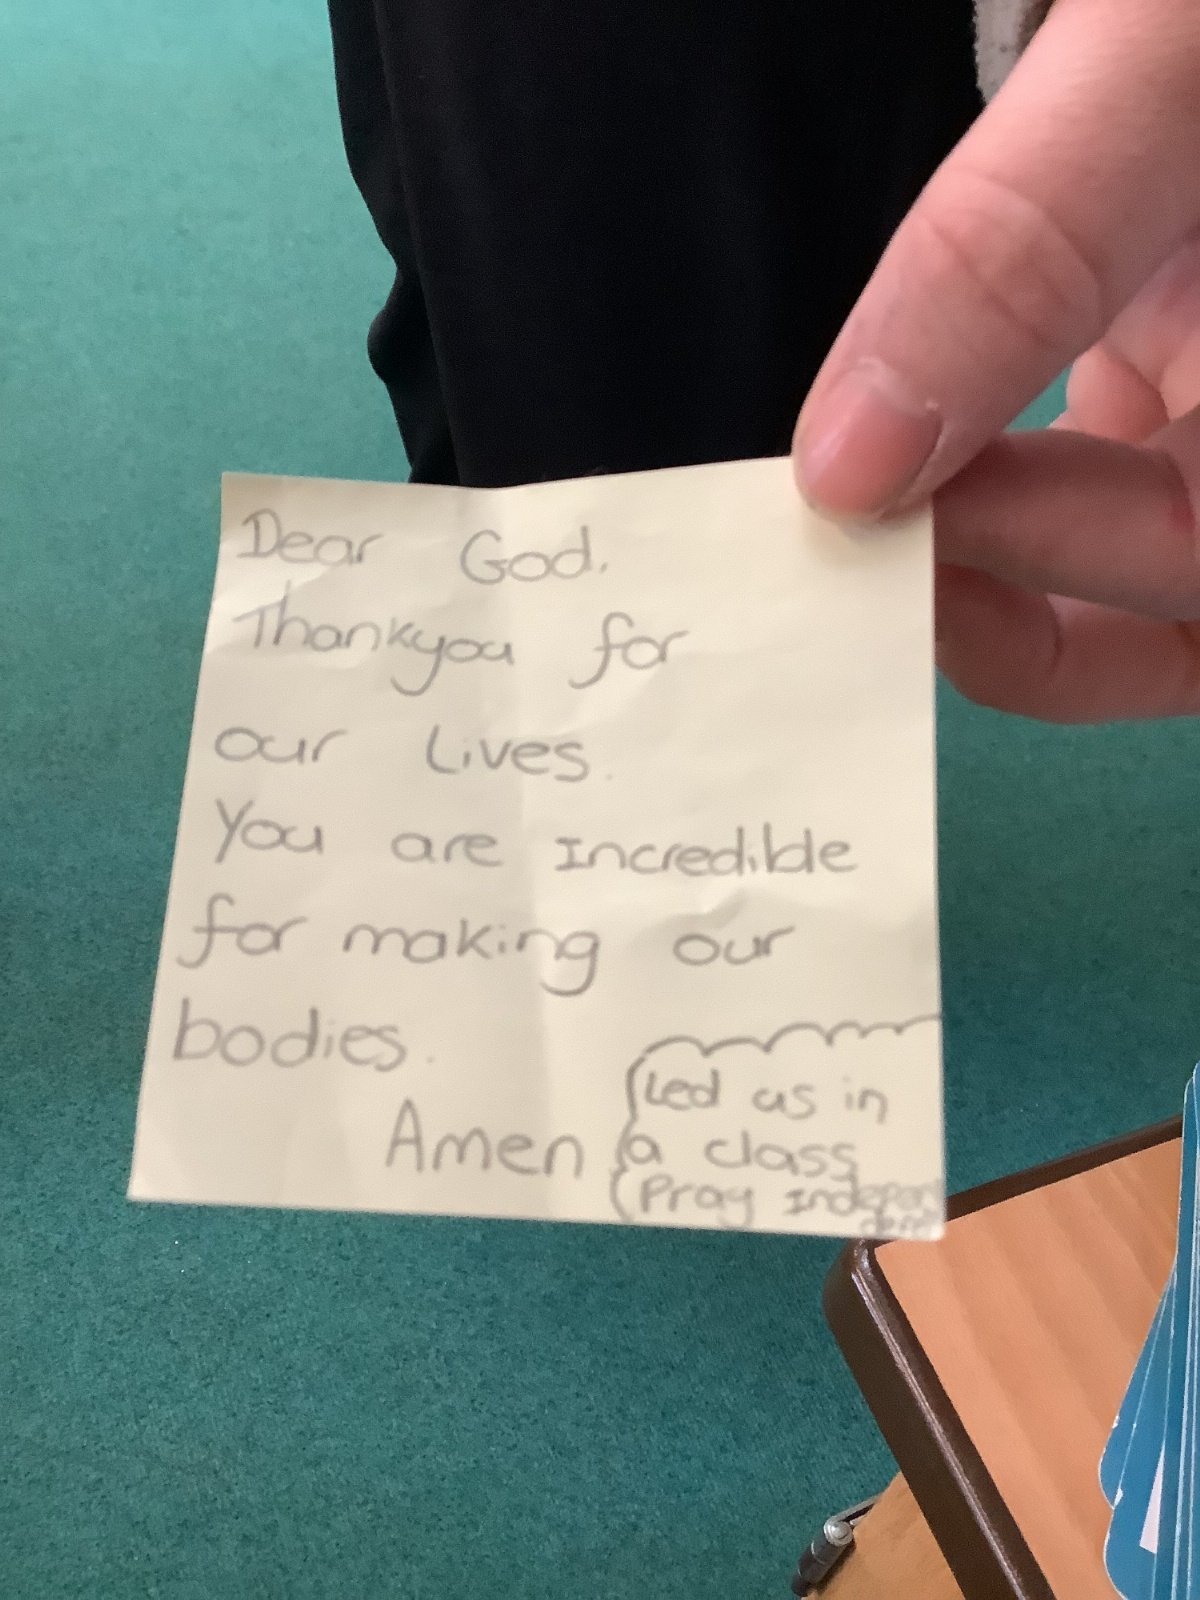 Dear God,
Thankyou for
our lives.
You are Incredible
for making our
bodies.
Amen
Led us in
a class
Pray Indepen
dent